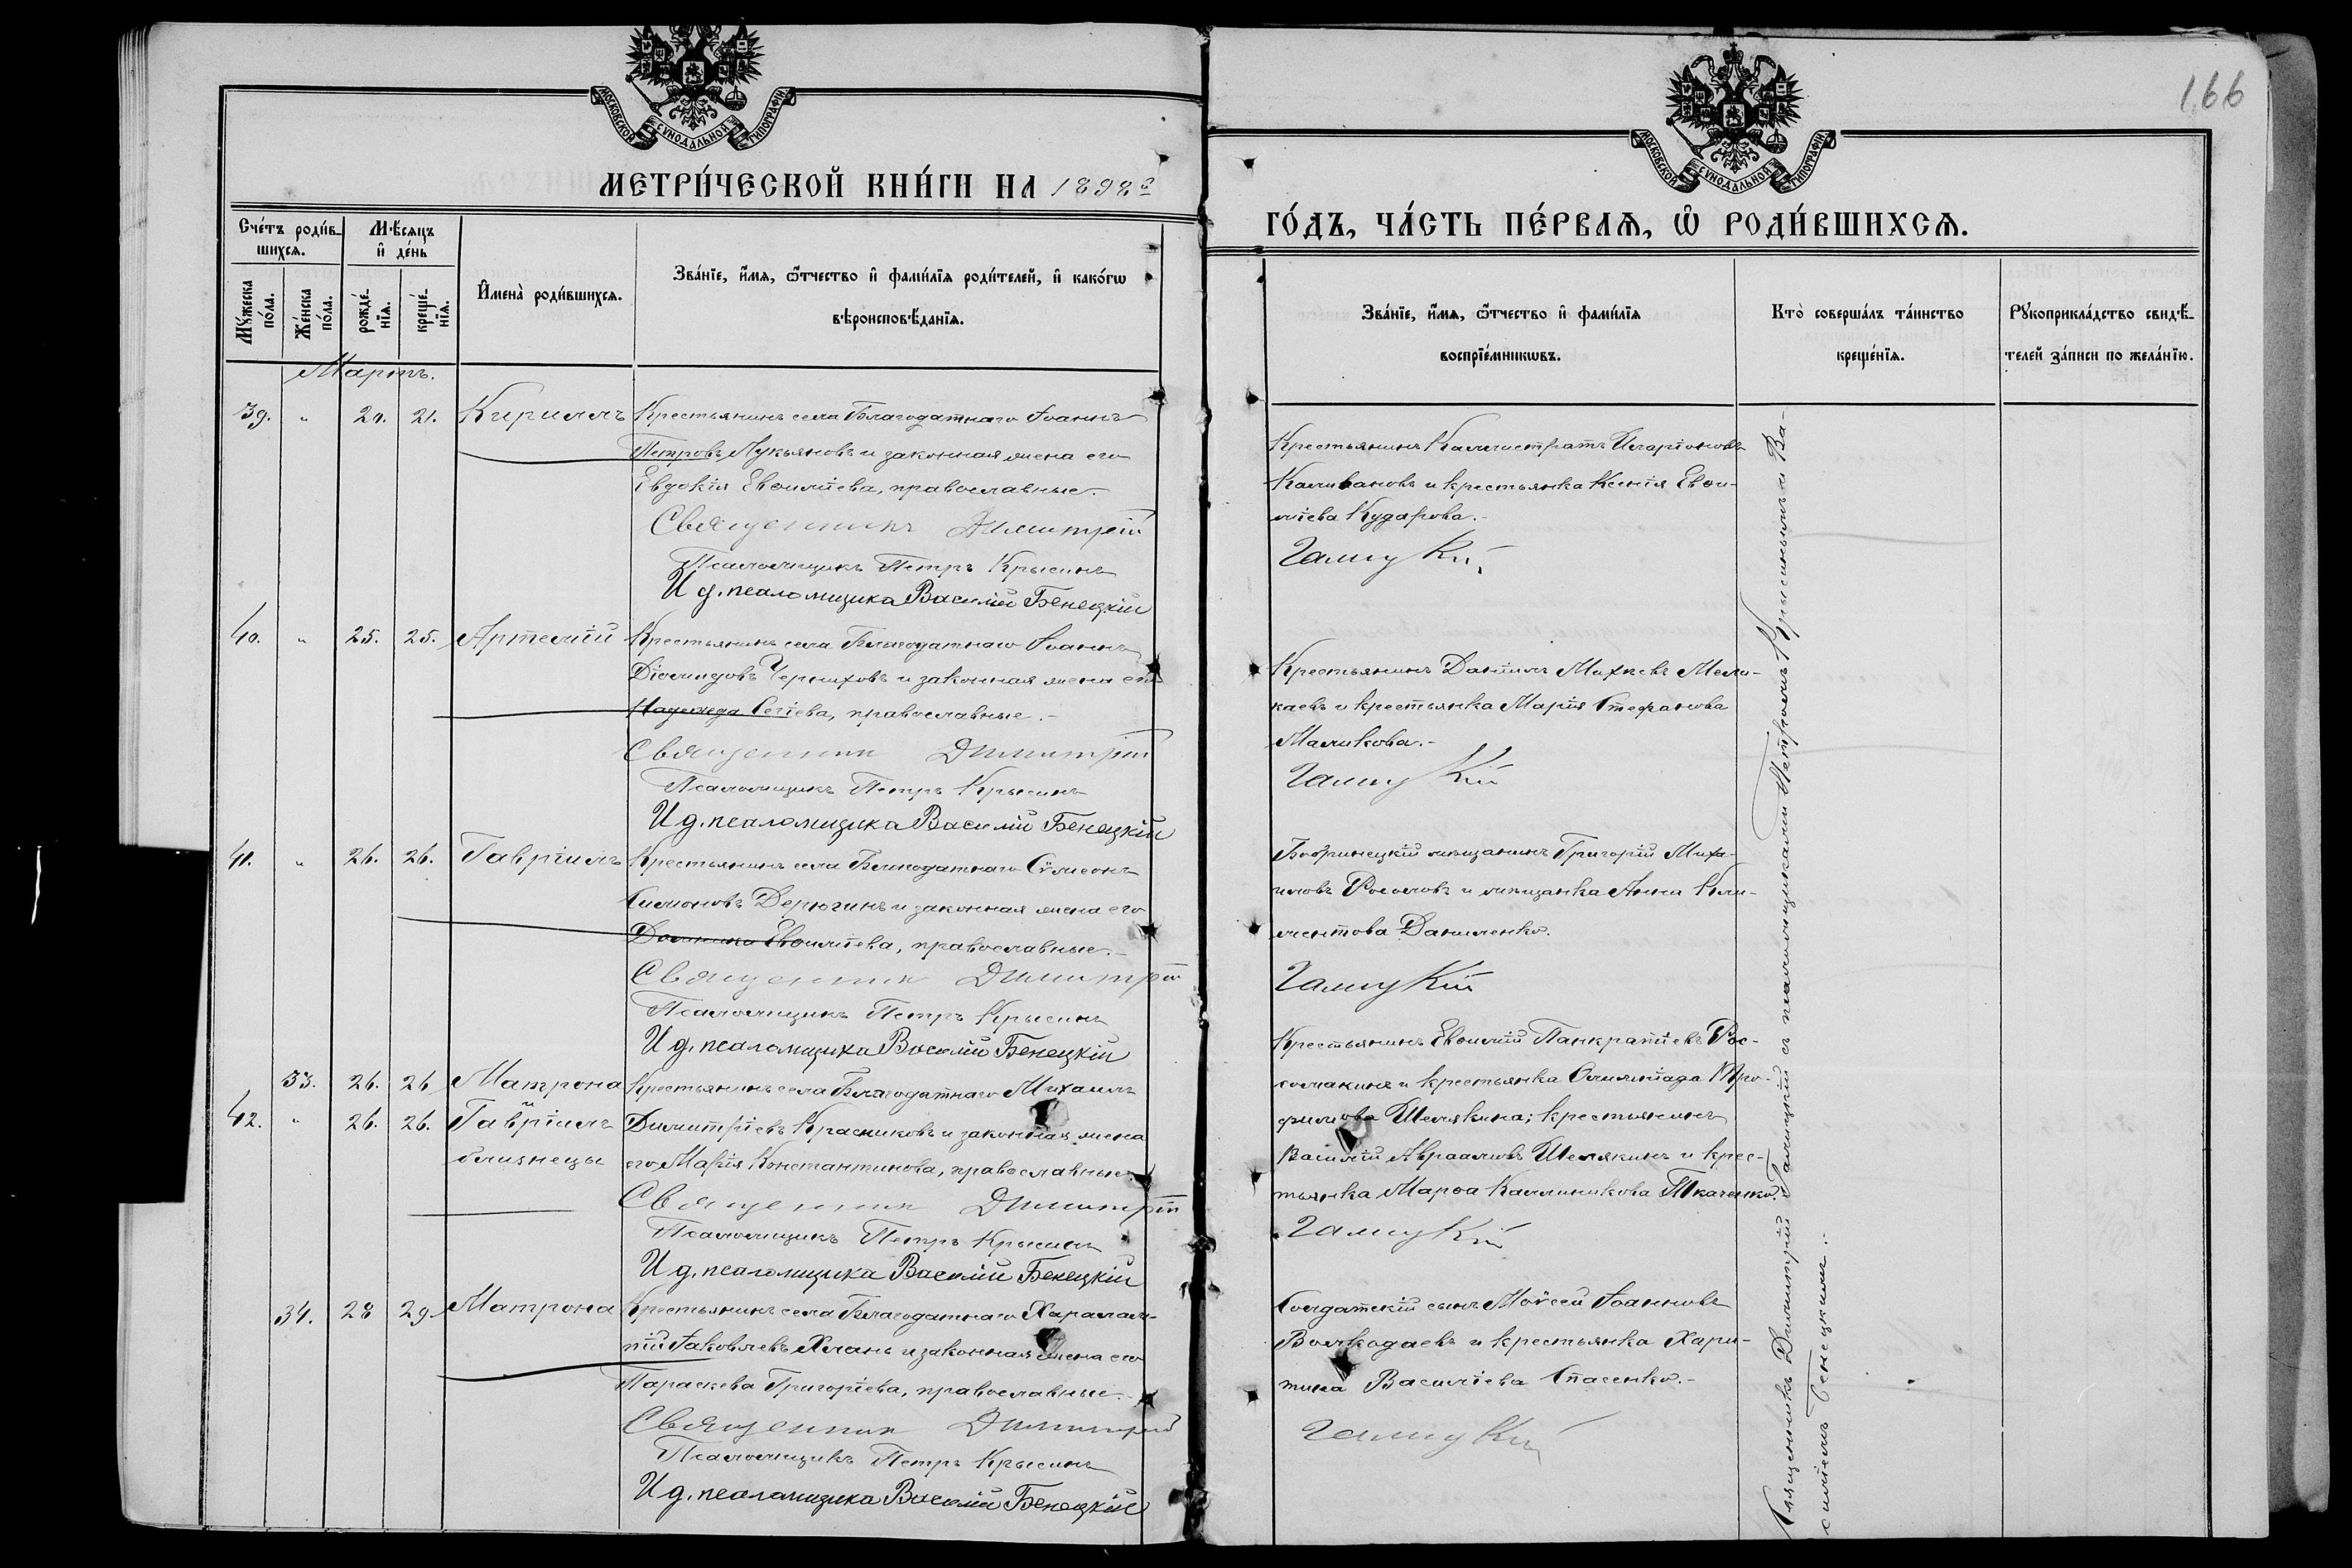 166
МОСКОВСКОЙ СѴНОДАЛЬНОЙ ТИПОГРАФІИ.
МОСКОВСКОЙ СѴНОДАЛЬНОЙ ТИПОГРАФІИ.
МЕТРИ́ЧЕСКОЙ КНИ́ГИ НА 1898й
ГО́ДЪ, ЧА́СТЬ ПЕ́РВАѦ, Ѡ҆ РОДИ́ВШИХСѦ.
Сче́тъ роди́в-
шихсѧ.
Мѣ́сѧцъ
и҆ де́нь
Мꙋ́жеска по́ла.
Же́нска по́ла.
рожде́-
нїѧ.
креще́-
нїѧ.
И҆мена̀ роди́вшихсѧ.
Зва́нїе, и҆́мѧ, ѻ҆́тчество и҆ фами́лїѧ роди́телей, и҆ како́гѡ
вѣроисповѣ́данїѧ.
Зва́нїе, и҆́мѧ, ѻ҆́тчество и҆ фами́лїѧ
воспрїе́мникѡвъ.
Кто̀ соверша́лъ та́инство
креще́нїѧ.
Рꙋкоприкла́дство свидѣ́-
телей за́писи по жела́нїю.
Мартъ.
39. " 20. 21. Кириллъ Крестьянинъ села Благодатнаго Іоаннъ
Петровъ Лукьяновъ и законная жена его
Евдокія Евѳиміева, православные.
Священникъ Димитрій
Псаломщикъ Петръ Крысинъ
И д. псаломщика Василій Бенецкій
Крестьянинъ Каллистратъ Иларіоновъ
Каливановъ и крестьянка Ксенія Евѳи-
міева Кударова.-
Галицкій
40. " 25. 25. Артемій Крестьянинъ села Благодатнаго Іоаннъ
Діомидовъ Черниховъ и законная жена его
Надежда Сегіева, православные.-
Священник Димитрій
Псаломщикъ Петръ Крысинъ
И д. псаломщика Василій Бенецкій
Крестьянинъ Даніилъ Михеевъ Мали-
каевъ и крестьянка Марія Стефанова
Маликова.-
Галицкій
41. " 26. 26. Гавріилъ Крестьянинъ села Благодатнаго Сѵмеонъ
Симоновъ Дерюгинъ и законная жена его
Домника Евѳиміева, православные.-
Священник Димитрій
Псаломщикъ Петръ Крысинъ
И д. псаломщика Василій Бенецкій
Бобринецкій мѣщанинъ Григорій Миха-
иловъ и мѣщанка Анна Кли-
ментова Даниленко.
Галицкій
33. 26. 26 Матрона Крестьянинъ села Благодатнаго Михаилъ
42. " 26. 26. и Гавріилъ Димитріевъ Красниковъ и законная жена
близнецы его Марія Константинова, православные.
Священник Димитрій
Псаломщикъ Петръ Крысинъ
И д. псаломщика Василій Бенецкій
Крестьянинъ Евѳимій Панкратіевъ Рос-
сомакинъ и крестьянка Олимпіада Тро-
фимова Шелякина; крестьянинъ
Василій Авраамовъ Шелякинъ и крес-
тьянка Марѳа Каллиникова Ткаченко.
Галицкій
34. 28 29 Матрона Крестьянинъ села Благодатнаго Харалам-
пій Іаковлевъ Хланъ и законная жена его
Параскева Григоріева, православные.-
Священник Димитрій
Псаломщикъ Петръ Крысинъ
И д. псаломщика Василій Бенецкій
Солдатскій сынъ Моѵсей Іоанновъ
Волкодаевъ и крестьянка Хари-
тина Василіева Спасенко.-
Галицкій
Священникъ Димитрій Галицкій съ псаломщиками Петромъ Крысинымъ и Ва-
силіемъ Бенецкимъ.-